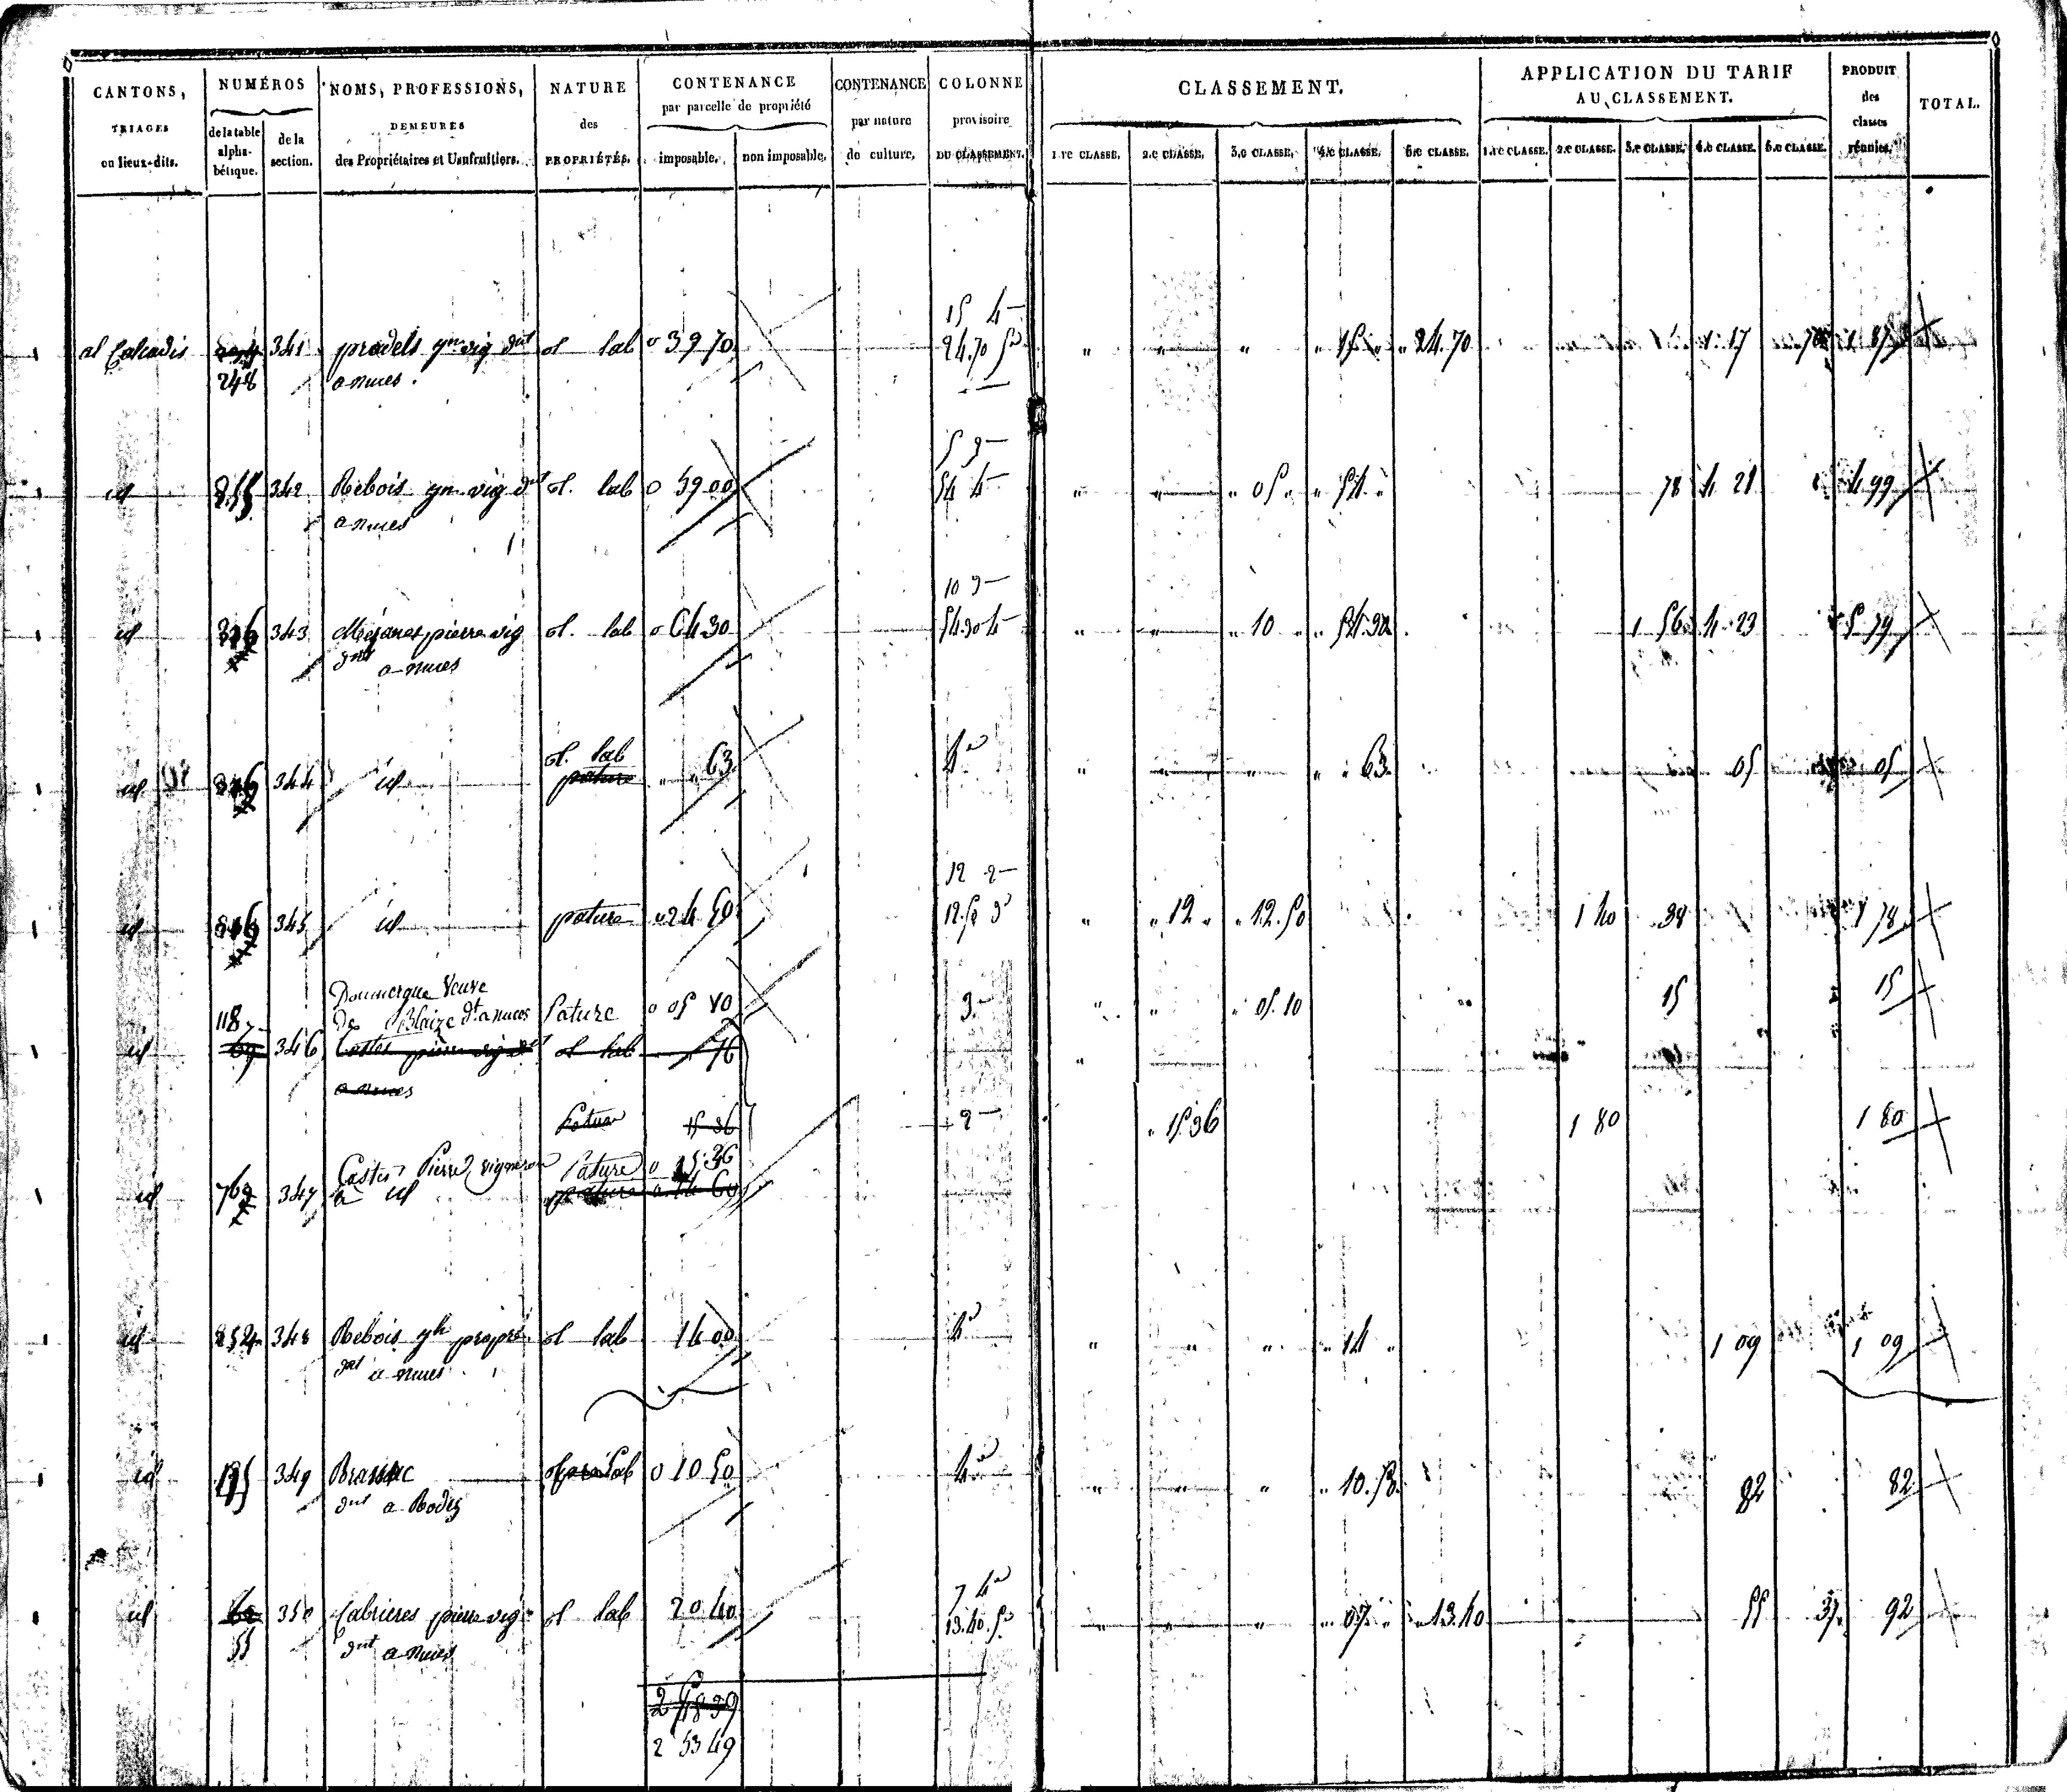 CANTONS, TRIAGES ou lieux-dits. | NUMÉROS de la table alphabétique. | de la section. | NOMS, PROFESSIONS, DEMEURES des Propriétaires et Usufruitiers. | NATURE des PROPRIÉTÉS. | CONTENANCE par parcelle de propriété imposable. | non imposable. | CONTENANCE par nature de culture. | COLONNE provisoire DU CLASSEMENT. | CLASSEMENT. 1.re CLASSE. 2.e CLASSE. 3.e CLASSE. 4.e CLASSE. 5.e CLASSE. | APPLICATION DU TARIF AU CLASSEMENT. 1.re CLASSE. 2.e CLASSE. 3.e CLASSE. 4.e CLASSE. 5.e CLASSE. | PRODUIT des classes réunies. | TOTAL.
15 4
al Calcadis 341 pradels vig dnt ol lab 0 39 70 24.70 5e " " " " 15 " " 24.70 1 17 70 1 87
248 a nuces
5 3
id 255 342 Rebois vig dnt ol. lab 0 59 00 54 4 " " " 05 " " 54 " 78 4 21 4 99
a nuces
10 3
id 343 Méjanes pierre vig ol. lab 0 64 30 54.30 4 " " " 10 " " 54.30 1 56 4 23 5 79
dnt a nuces
ol. lab
id 344 id pature " " 63 4e " " " " " 63 05 05
12 2
id 345 id pature " 24 50 12.50 3e " " 12 " " 12.50 1 40 38 1 78
Doumergue Veuve
118 de Blaize dt a nuces Pature 0 05 10 3 " " " 05.10 15 15
id 69 346 Castes pierre vig dnt ol lab 76
a nuces
Pature 15 36 2 " 15.36 1 80 1 80
Castes Pierre vigneron Pature 0 15.36
id 69 347 a id pature 0 14 60
id 252 348 Rebois propre. ol lab 14 00 4e " " " " 14 " 1 09 1 09
dnt a nuces
id 349 Brassac ol lab 0 10 50 4e " " " " 10.50 82 82
dnt a Rodez
7 4e
id 62 350 Cabrieres pierre vig ol lab 20 40 13.40.5e " " " " 07 " " 13.40 55 37 92
55 dnt a nuces
2 53 49